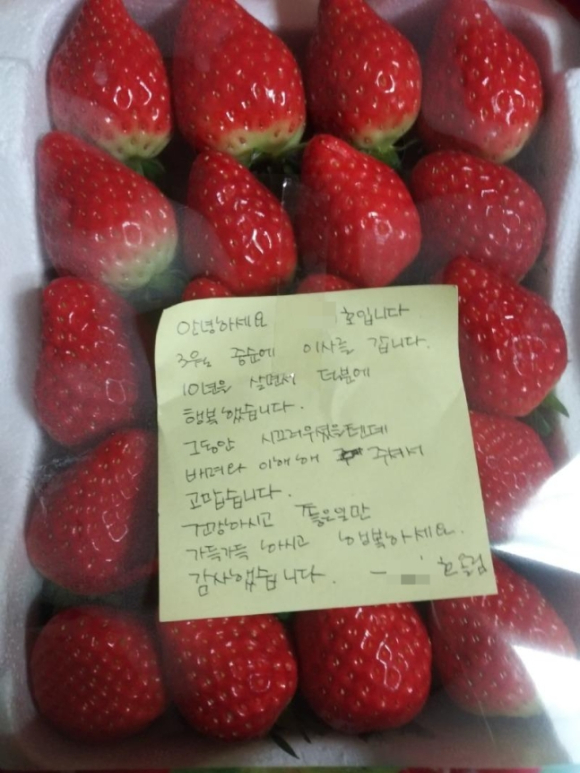 안녕하세요 호입니다
3월 중순에 이사를 갑니다.
10년을 살면서 덕분에
행복했습니다.
그동안 시끄러우셨을텐데
배려와 이해해 주셔서
고맙습니다.
건강하시고 좋은일만
가득가득 하시고 행복하세요.
감사했습니다. - 호올림